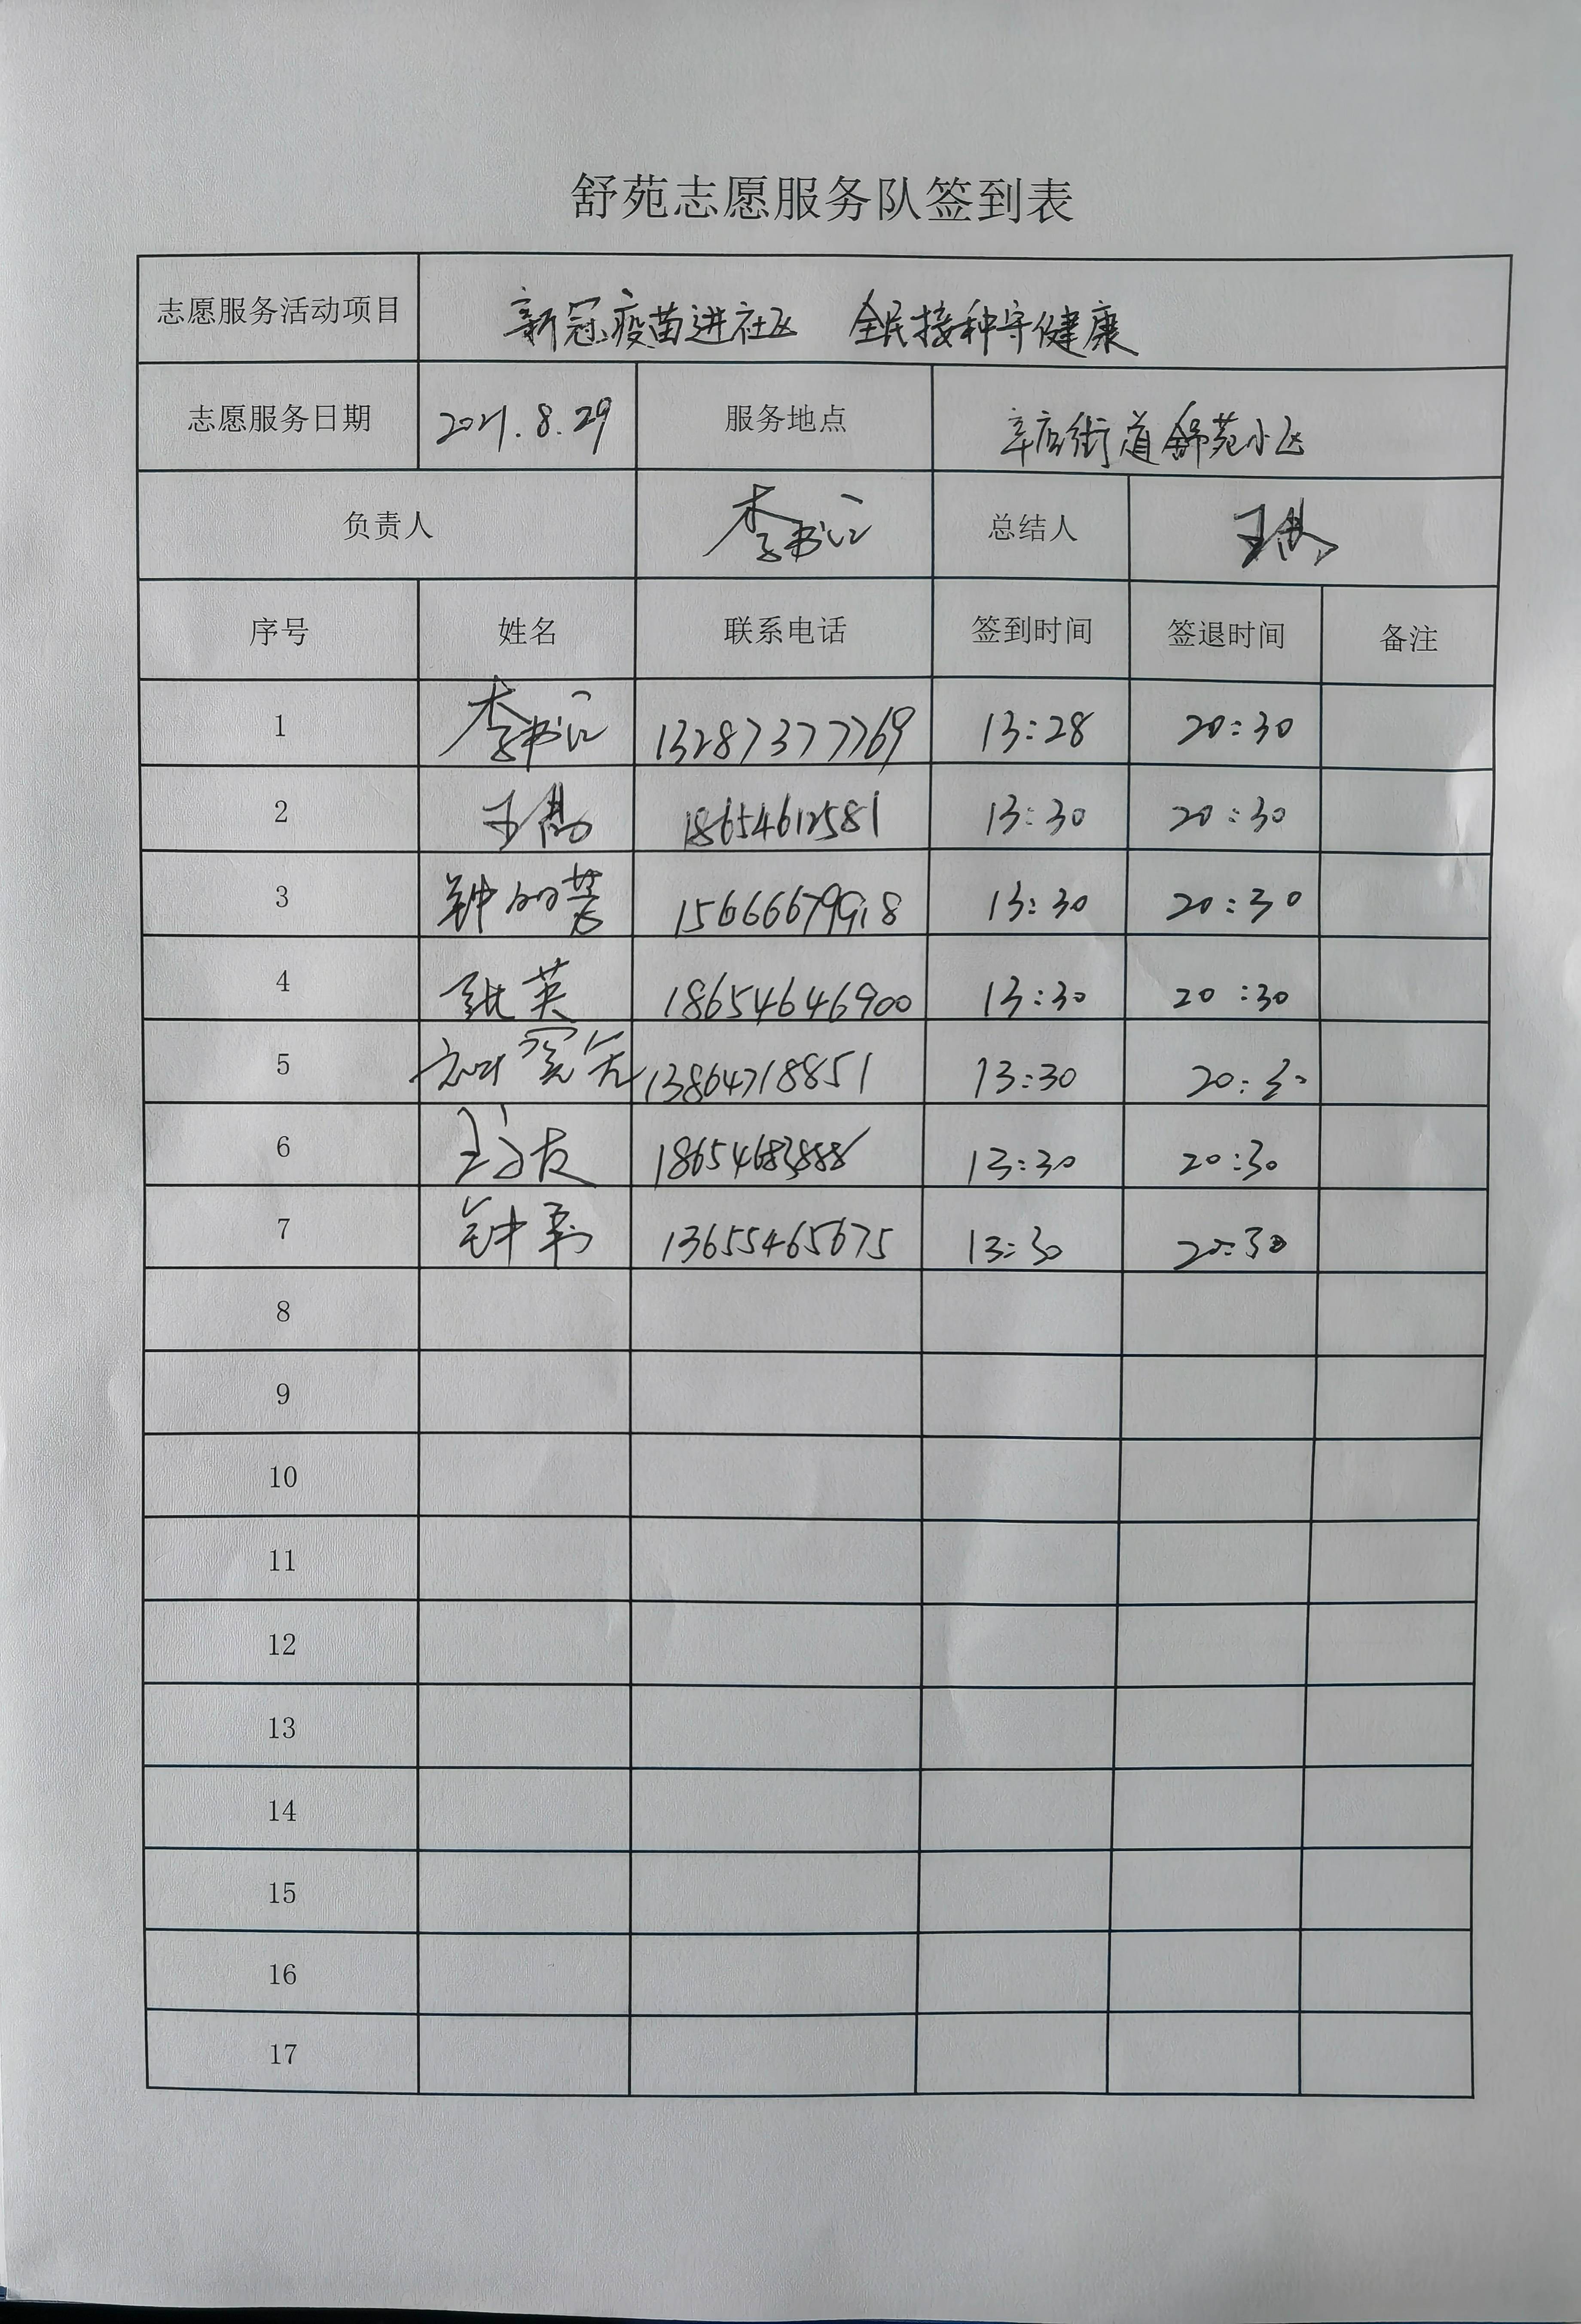 舒苑志愿服务队签到表
志愿服务活动项目 新冠疫苗进社区 全民接种守健康
志愿服务日期 2021.8.29 服务地点 辛店街道舒苑小区
负责人 李书记 总结人 王
序号 姓名 联系电话 签到时间 签退时间 备注
1 李书记 13287377769 13:28 20:30
2 王 18654612581 13:30 20:30
3 钟 15666679918 13:30 20:30
4 英 18654646900 13:30 20:30
5 13864718851 13:30 20:30
6 13:30 20:30
7 钟 13655465675 13:30 20:30
8
9
10
11
12
13
14
15
16
17